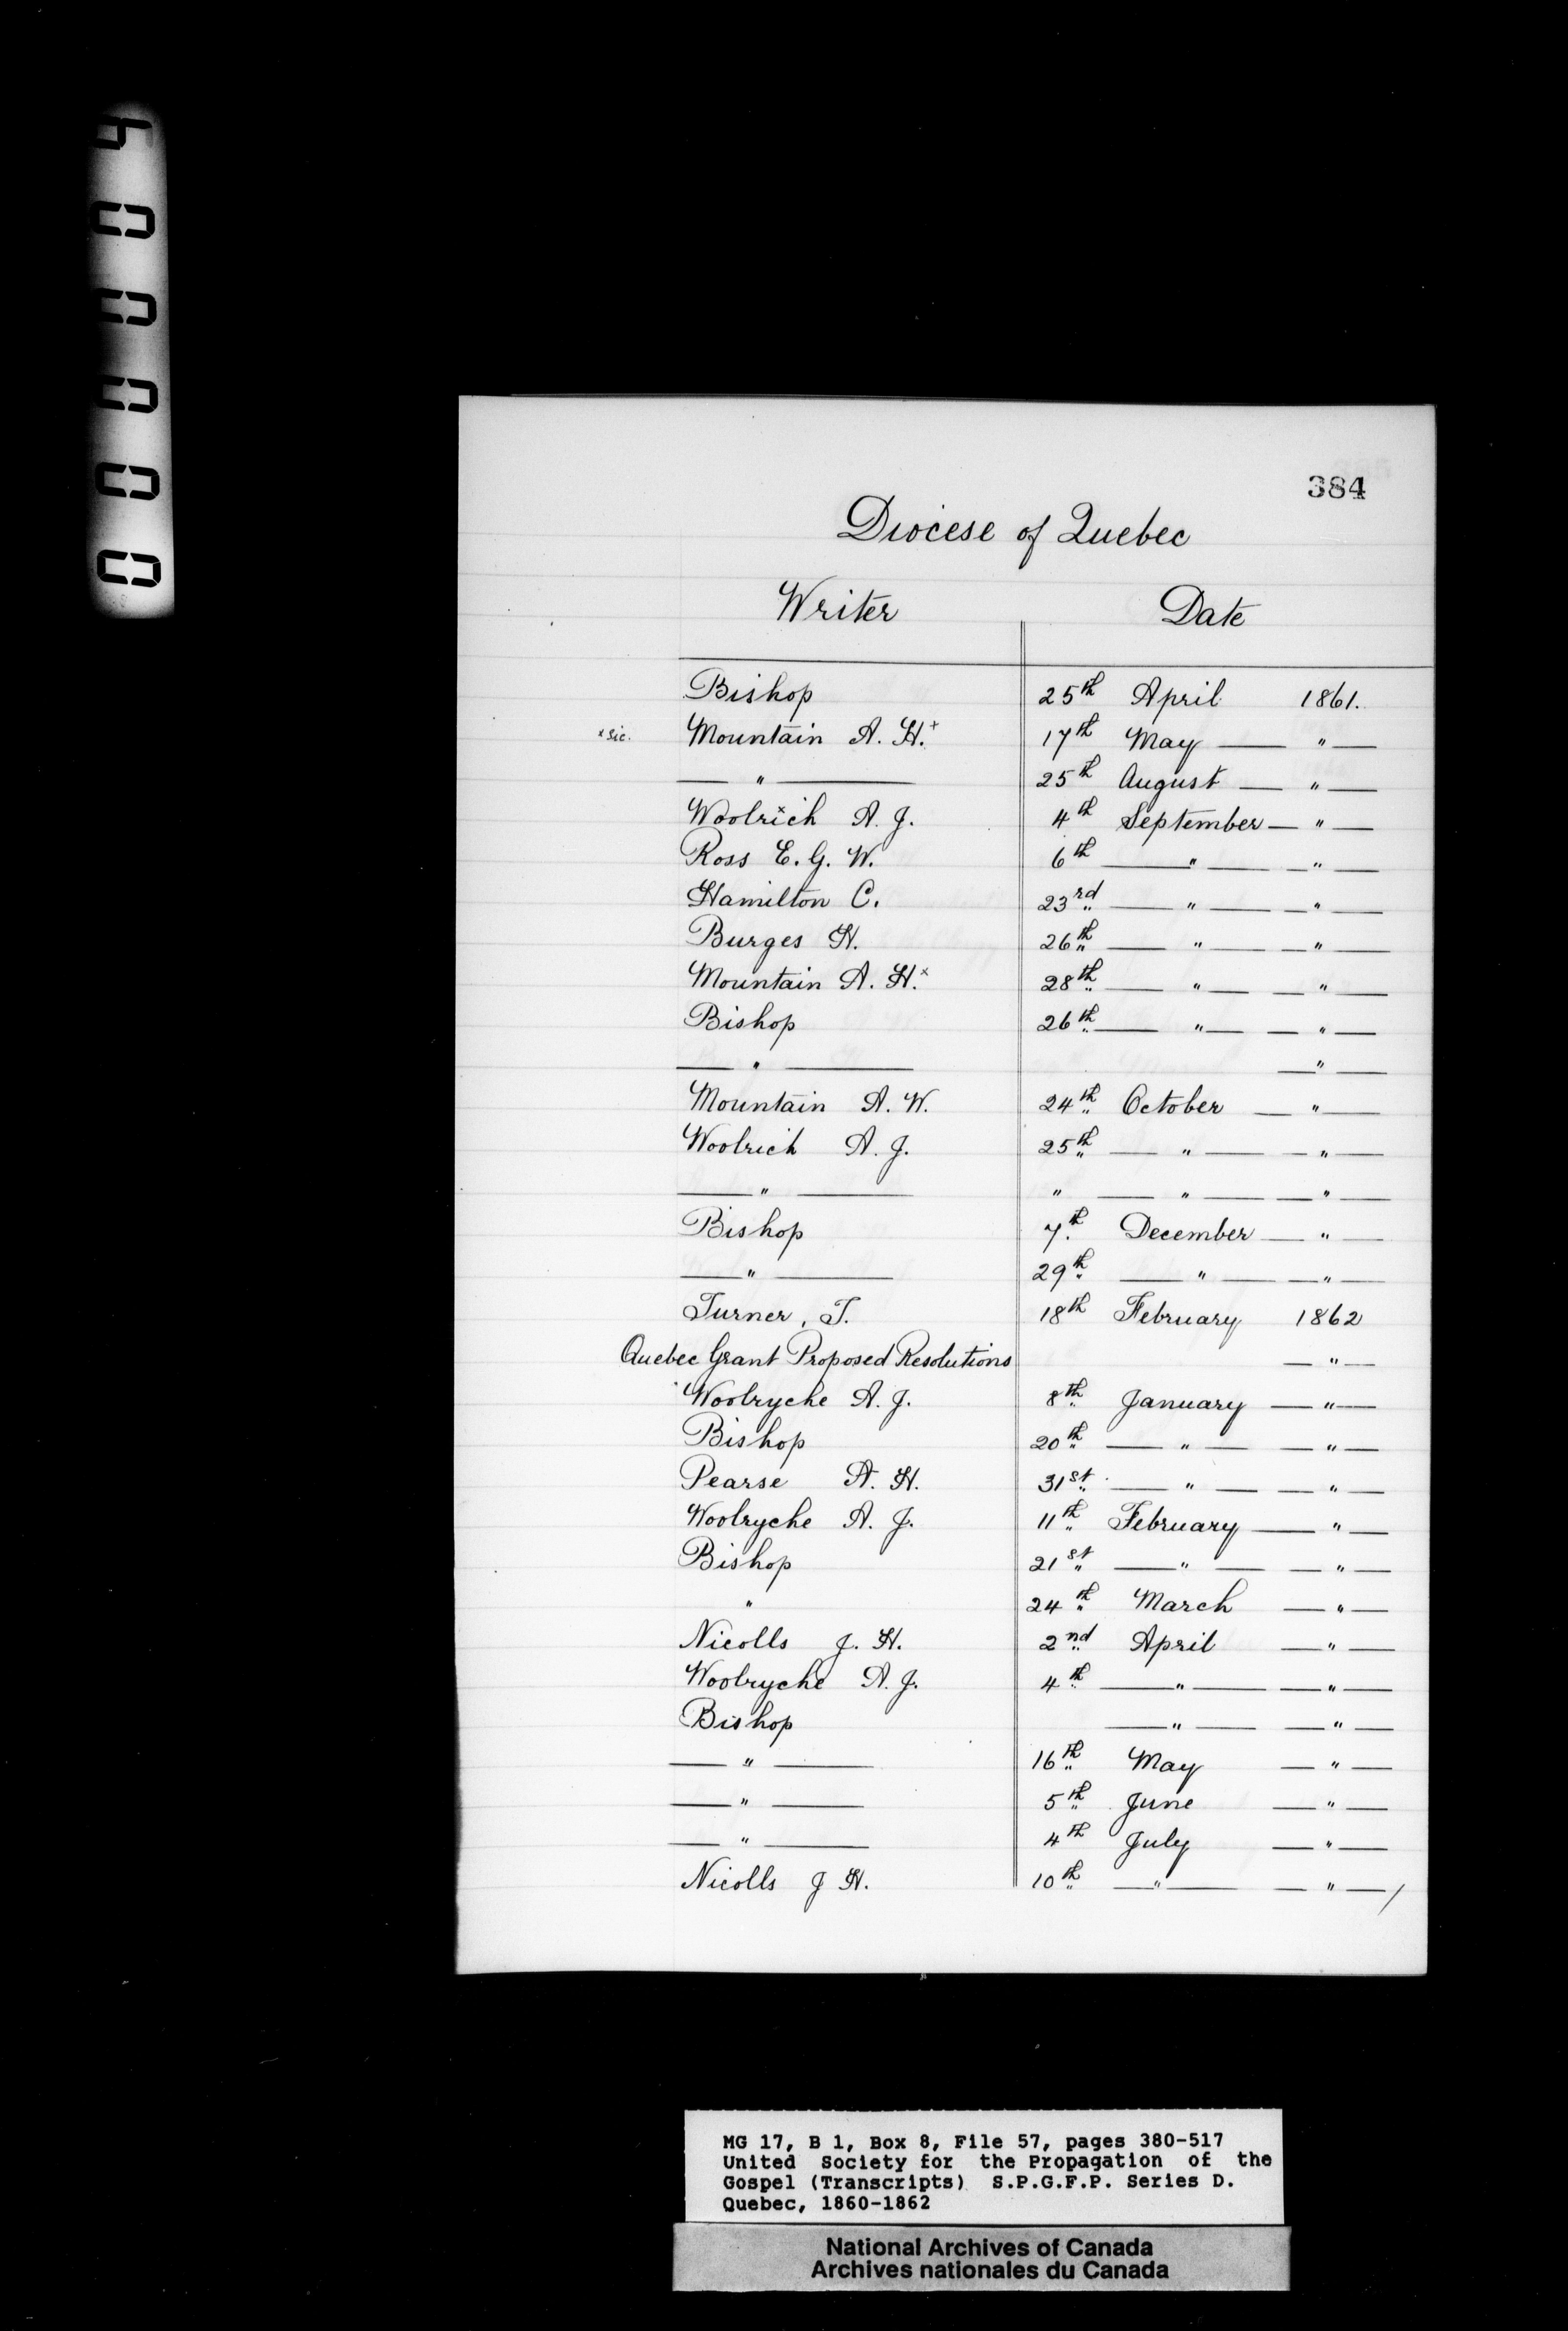 400000
384
Diocese of Quebec
Writer Date
Bishop 25th April 1861.
x sic. Mountain A. H.+ 17th May — " —
— " — 25th August — " —
Woolrxich A. J. 4th September — " —
Ross E. G. W. 6th — " — — " —
Hamilton C. 23rd — " — — " —
Burges H. 26th — " — — " —
Mountain A. H.x 28th — " — — " —
Bishop 26th — " — — " —
— " — — " —
Mountain A. W. 24th October — " —
Woolrich A. J. 25th — " — — " —
— " — " — " — — " —
Bishop 7th December — " —
— " — 29th — " — — " —
Turner, T. 18th February 1862
Quebec Grant Proposed Resolutions — " —
Woolryche A. J. 8th January — " —
Bishop 20th — " — — " —
Pearse A. H. 31st — " — — " —
Woolryche A. J. 11th February — " —
Bishop 21st — " — — " —
" 24th March — " —
Nicolls J. H. 2nd April — " —
Woolryche A. J. 4th — " — — " —
Bishop — " — — " —
— " — 16th May — " —
— " — 5th June — " —
— " — 4th July — " —
Nicolls J H. 10th — " — — " — /
MG 17, B 1, Box 8, File 57, pages 380-517
United Society for the Propagation of the
Gospel (Transcripts) S.P.G.F.P. Series D.
Quebec, 1860-1862
National Archives of Canada
Archives nationales du Canada